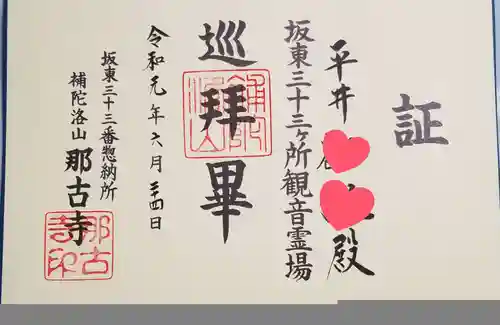 証
平井 殿
坂東三十三ヶ所観音霊場
巡拝畢
令和元年六月二十四日
坂東三十三番惣納所
補陀洛山 那古寺
那古寺印